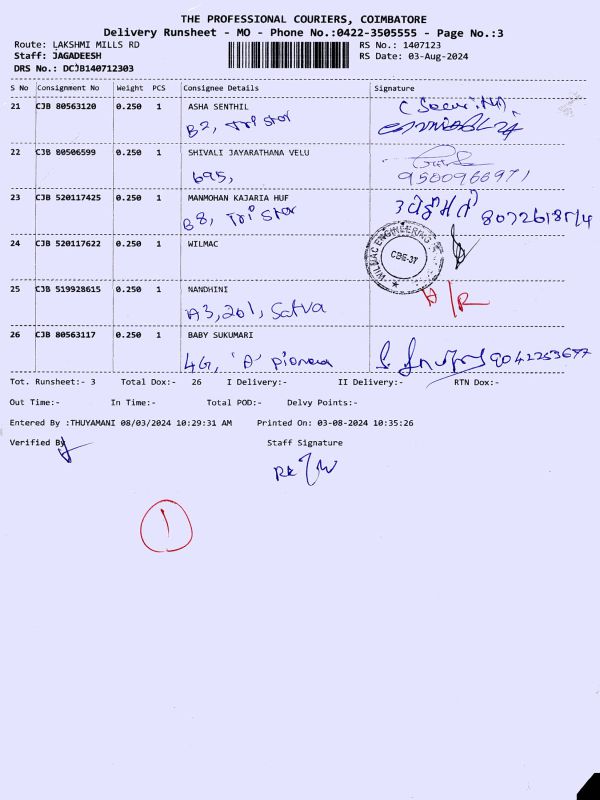 THE PROFESSIONAL COURIERS, COIMBATORE
Delivery Runsheet - MO - Phone No.:0422-3505555 - Page No.:3
Route: LAKSHMI MILLS RD RS No.: 1407123
Staff: JAGADEESH RS Date: 03-Aug-2024
DRS No.: DCJB140712303
S No Consignment No Weight PCS Consignee Details Signature
21 CJB 80563120 0.250 1 ASHA SENTHIL
B2, Tri Star
22 CJB 80506599 0.250 1 SHIVALI JAYARATHANA VELU
695, 9500966971
23 CJB 520117425 0.250 1 MANMOHAN KAJARIA HUF
B8, Tri Star
24 CJB 520117622 0.250 1 WILMAC
WILMAC ENGINEERING
CBE-37
25 CJB 519928615 0.250 1 NANDHINI
A3, 201, Satva A/R
26 CJB 80563117 0.250 1 BABY SUKUMARI
4G, 'A' Pioneer
Tot. Runsheet:- 3 Total Dox:- 26 I Delivery:- II Delivery:- RTN Dox:-
Out Time:- In Time:- Total POD:- Delvy Points:-
Entered By :THUYAMANI 08/03/2024 10:29:31 AM Printed On: 03-08-2024 10:35:26
Verified By Staff Signature
1